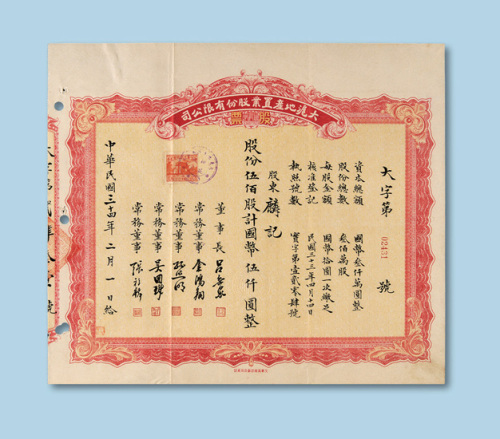 大滬地產置業股份有限公司
股票
大字第 02431 號
資本總額 國幣叁仟萬圓整
股份總數 叁佰萬股
每股金額 國幣拾圓一次繳足
核准登記 民國三十三年四月十四日
執照號數 實字第壹貳零肆號
股東 麟記
股份伍佰股計國幣伍仟圓整
董事長 呂岳泉
常務董事 金鴻翔
常務董事
常務董事
常務董事
中華民國三十四年二月一日給